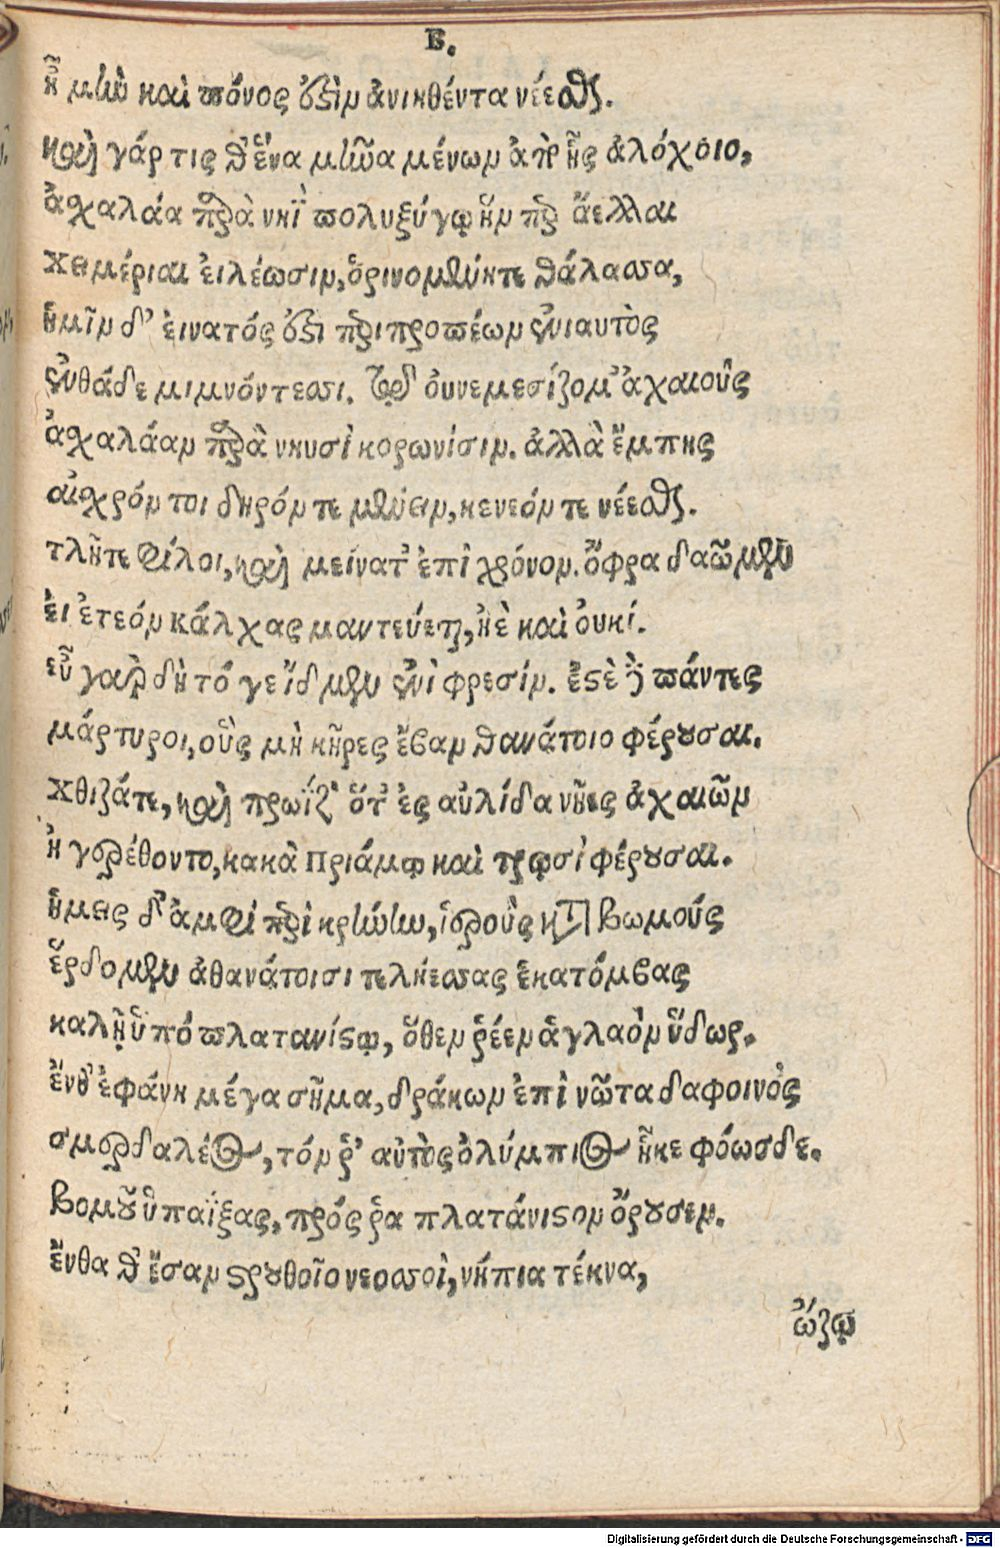 Β.
ἦ μὴν καὶ πόνος ἐστὶν ἀνιηθέντα νέεσθαι.
καὶ γάρ τις θ' ἕνα μῆνα μένων ἀπὸ ἧς ἀλόχοιο,
ἀσχαλάα παρὰ νηῒ πολυζύγῳ ἥν περ ἄελλαι
χειμέριαι εἰλέωσιν, ὀρινομένητε θάλασσα,
ἡμῖν δ' εἰνατός ἐστι περιπροπέων ἐνιαυτὸς
ἐνθάδε μιμνόντεσσι. τῷ δ' οὐνεμεσίζομ' ἀχαιοὺς
ἀσχαλάαν παρὰ νηυσὶ κορωνίσιν. ἀλλὰ ἔμπης
αἰσχρόν τοι δηρόν τε μένειν, κενεόν τε νέεσθαι.
τλῆτε φίλοι, καὶ μείνατ' ἐπὶ χρόνον. ὄφρα δαῶμεν
εἰ ἐτεὸν κάλχας μαντεύεται, ἠὲ καὶ οὐκί.
εὖ γαρ δὴ τό γε ἴδμεν ἐνὶ φρεσίν. ἐστὲ δὲ πάντες
μάρτυροι, οὓς μὴ κῆρες ἔβαν θανάτοιο φέρουσαι.
χθιζάτε, καὶ πρωΐζ' ὅτ' ἐς αὐλίδα νῆες ἀχαιῶν
ἠγερέθοντο, κακὰ Πριάμῳ καὶ τρωσὶ φέρουσαι.
ἡμεῖς δ' ἀμφὶ περὶ κρήνην, ἱεροὺς κατὰ βωμούς
ἔρδομεν ἀθανάτοισι τεληέσσας ἑκατόμβας
καλῇ ὑπὸ πλατανίστῳ, ὅθεν ῥέεν ἀγλαὸν ὕδωρ.
ἔνθ' ἐφάνη μέγα σῆμα, δράκων ἐπὶ νῶτα δαφοινὸς
σμερδαλέος, τόν ῥ' αὐτὸς ὀλύμπιος ἧκε φόωσδε.
βομοῦ ὑπαΐξας, πρός ῥα πλατάνιστον ὄρουσεν.
ἔνθα δ' ἔσαν στρουθοῖο νεοσσοὶ, νήπια τέκνα,
ὄζῳ
Digitalisierung gefördert durch die Deutsche Forschungsgemeinschaft - DFG